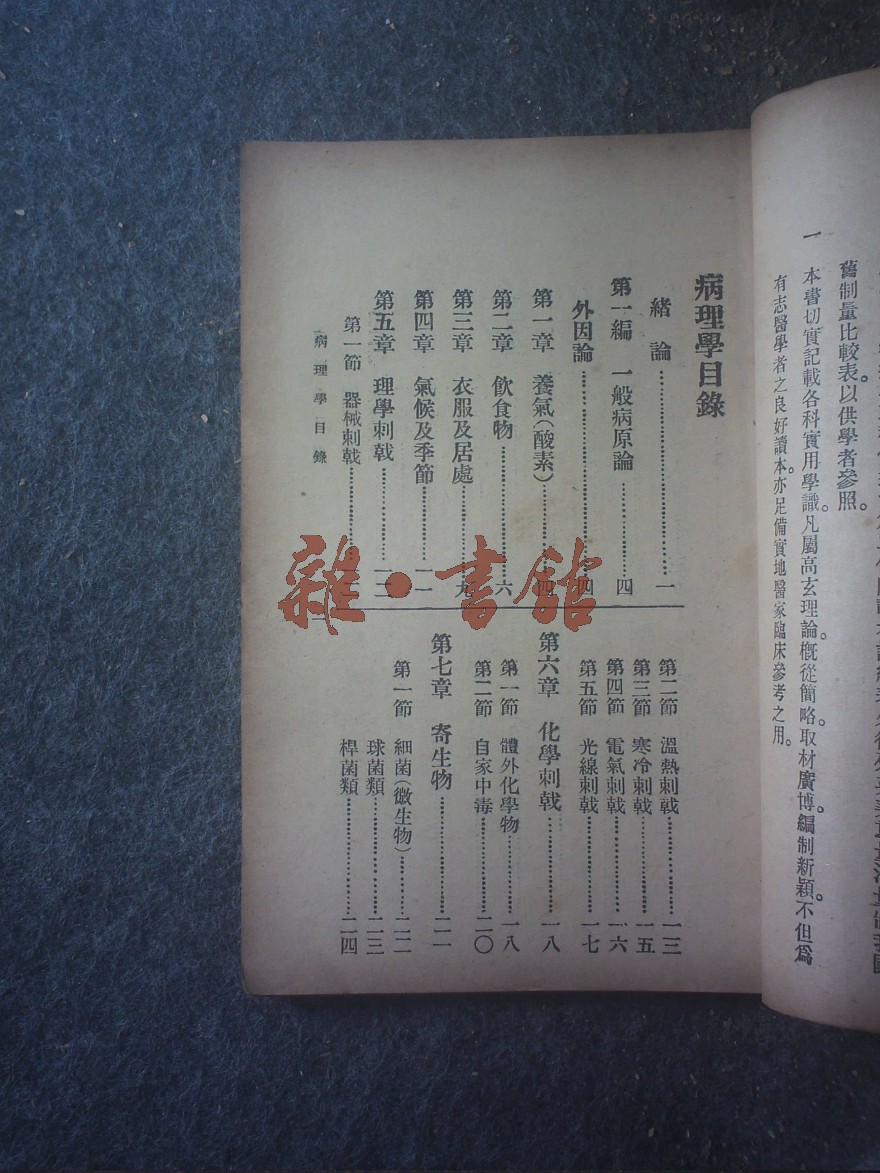 舊制量比較表。以供學者參照。
一
本書切實記載各科實用學識。凡屬高玄理論。槪從簡略。取材廣博。編制新穎。不但爲
有志醫學者之良好讀本。亦足備實地醫家臨床參考之用。
病理學目錄
緒論……一
第一編 一般病原論……四
外因論……四
第一章 養氣(酸素)……四
第二章 飲食物……六
第三章 衣服及居處……九
第四章 氣候及季節……一一
第五章 理學刺戟……一二
第一節 器械刺戟……一二
第二節 溫熱刺戟……一三
第三節 寒冷刺戟……一五
第四節 電氣刺戟……一六
第五節 光線刺戟……一七
第六章 化學刺戟……一八
第一節 體外化學物……一八
第二節 自家中毒……二〇
第七章 寄生物……二一
第一節 細菌(微生物)……二二
球菌類……二三
桿菌類……二四
病理學目錄
一
雜·書館